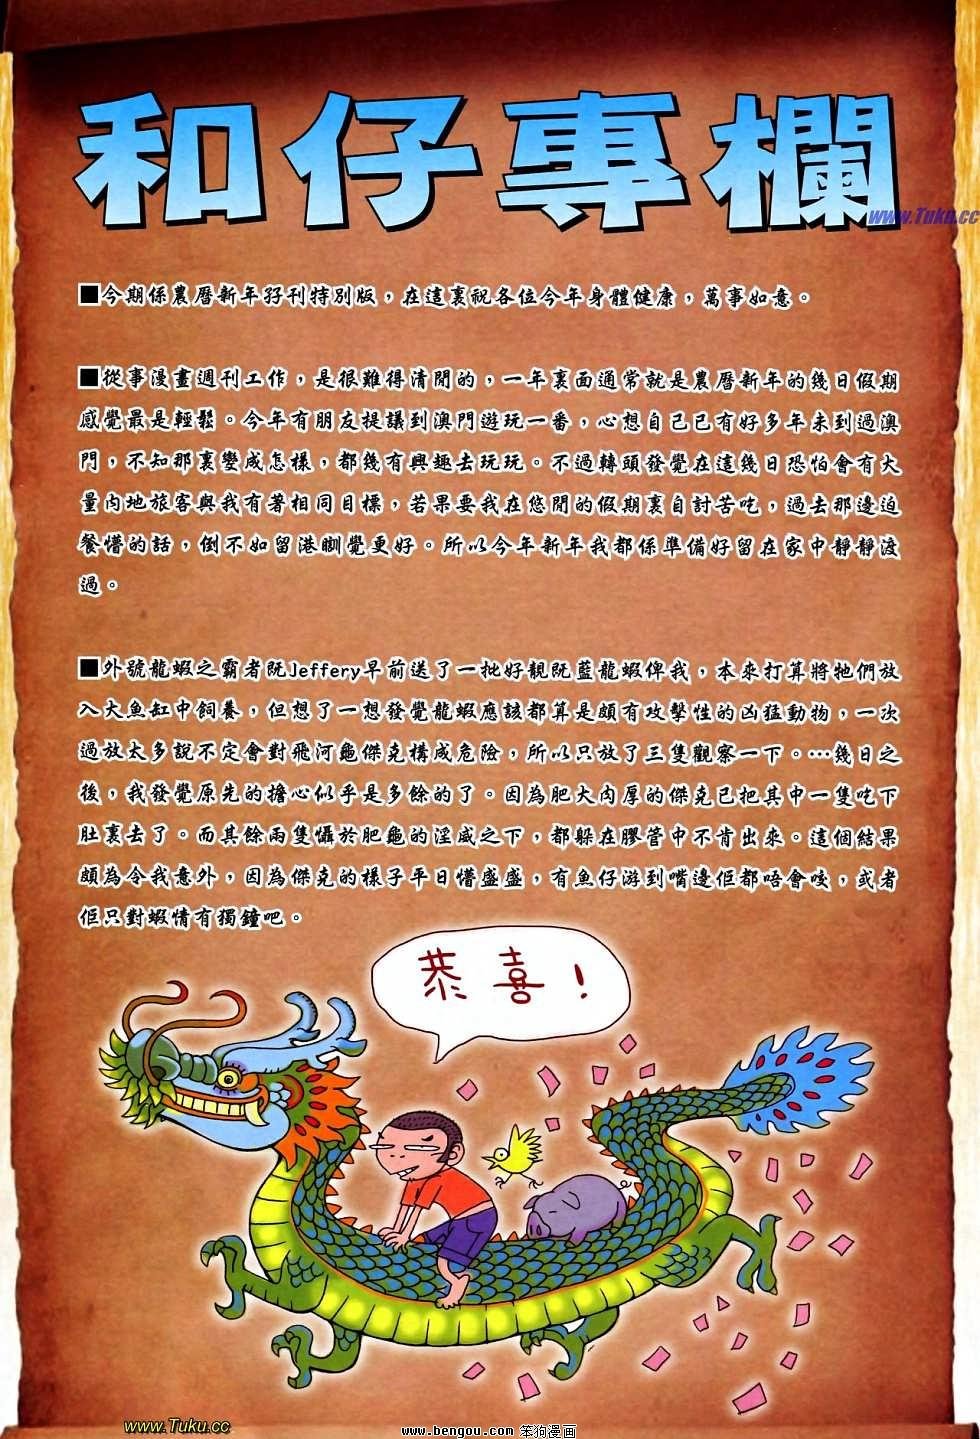 和仔專欄
www.Tuku.cc
■今期係農曆新年孖刊特別版，在這裏祝各位今年身體健康，萬事如意。
■從事漫畫週刊工作，是很難得清閒的，一年裏面通常就是農曆新年的幾日假期
感覺最是輕鬆。今年有朋友提議到澳門遊玩一番，心想自己已有好多年未到過澳
門，不知那裏變成怎樣，都幾有興趣去玩玩。不過轉頭發覺在這幾日恐怕會有大
量內地旅客與我有著相同目標，若果要我在悠閒的假期裏自討苦吃，過去那邊迫
餐懵的話，倒不如留港瞓覺更好。所以今年新年我都係準備好留在家中靜靜渡
過。
■外號龍蝦之霸者既Jeffery早前送了一批好靚既藍龍蝦俾我，本來打算將牠們放
入大魚缸中飼養，但想了一想發覺龍蝦應該都算是頗有攻擊性的凶猛動物，一次
過放太多說不定會對飛河龜傑克構成危險，所以只放了三隻觀察一下。…幾日之
後，我發覺原先的擔心似乎是多餘的了。因為肥大肉厚的傑克已把其中一隻吃下
肚裏去了。而其餘兩隻懾於肥龜的淫威之下，都躲在膠管中不肯出來。這個結果
頗為令我意外，因為傑克的樣子平日懵盛盛，有魚仔游到嘴邊佢都唔會咬，或者
佢只對蝦情有獨鐘吧。
恭喜！
www.Tuku.cc
www.bengou.com 笨狗漫画